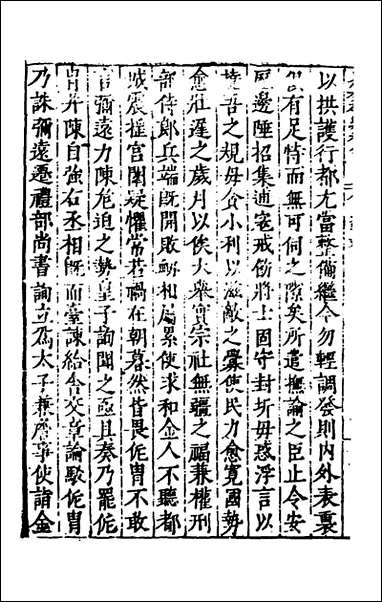 以拱護行都尤當整備繼今勿輕調發則内外表裏
有足恃而無可伺之隙矣所遣撫諭之臣止令安
邊陲招集逋寇戒飭將士固守封圻毋惑浮言以
撓吾之規毋貪小利以滋敵之釁使民力愈寬國勢
愈壯遲之歲月以俟大舉實宗社無疆之福兼權刑
部侍郎兵端既開敗衂相屬累使求和金人不聽都
城震搖宮闈疑懼常若禍在朝暮然皆畏侂胄不敢
言彌遠力陳危迫之勢皇子詢聞之亟具奏乃罷侂
胄并陳自強右丞相既而臺諫給舍交章論駁侂胄
乃誅彌遠遷禮部尚書詢立爲太子兼詹事使詣金